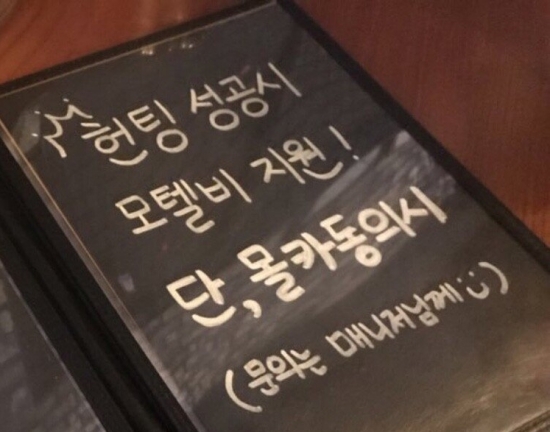 헌팅 성공시
모텔비 지원!
단, 몰카동의시
(문의는 매니저님께 :))